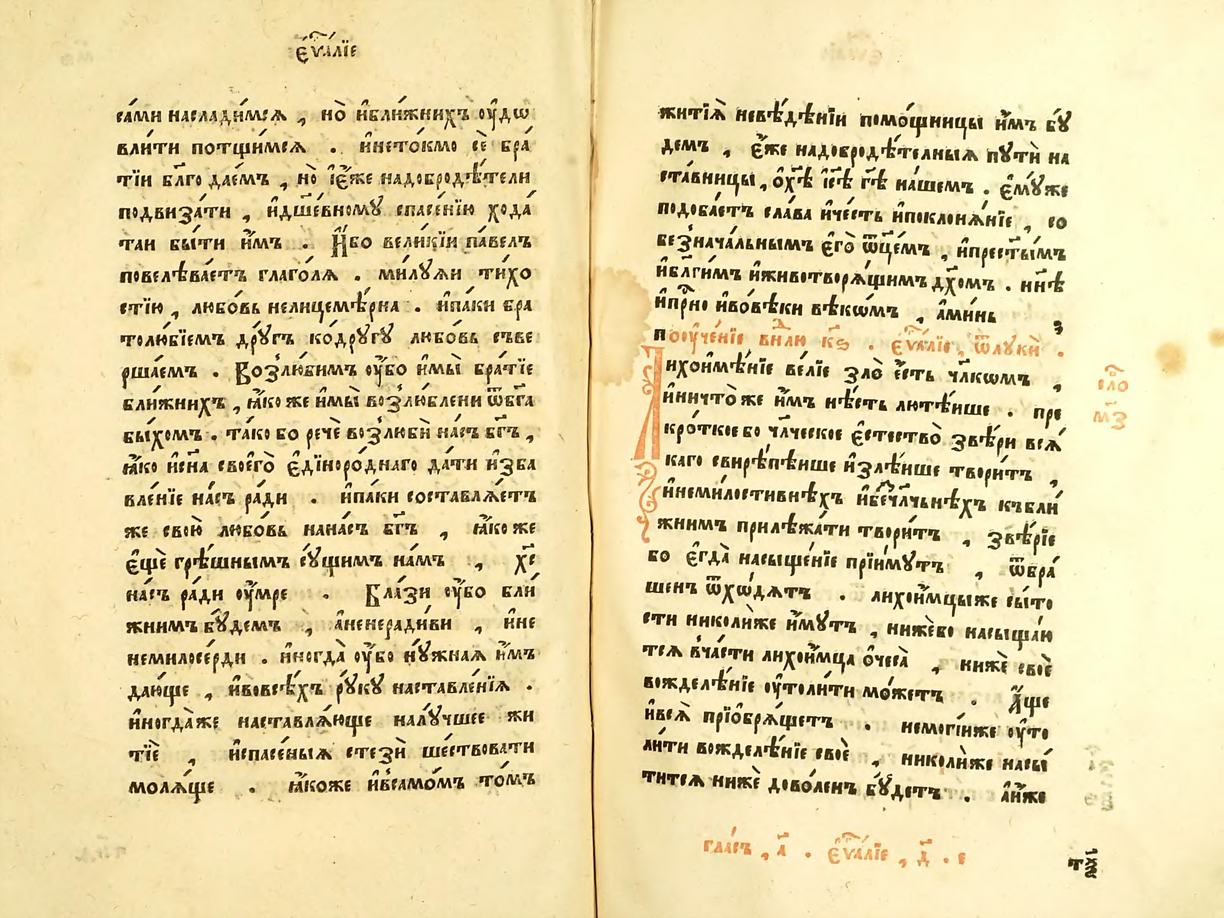 єѵⷢ҇алїе
са́ми наслади́мсѧ , но̀ и҆бли́жнихъ ᲂу҆́дѡ
влити потщи́мсѧ . и҆нето́кмо сѐ бра́
тїи бл҃го дае́мъ , но̀ і҆є҆́же надоброде́тели
подвиза́ти , и҆дш҃е́вномꙋ спасе́нїю хода́
таи бы́ти и҆́мъ . и҆́бо вели́кїи па́велъ
повелѣва́етъ глаго́лѧ . ми́лꙋѧи ти́хо
стїю , любо́вь нелицемѣ́рна . и҆па́ки бра
толю́бїемъ дрꙋ́гъ ко́дрꙋгꙋ любо́вь съве
рша́емъ . Возлю́бимъ ᲂу҆́бо и҆мы̀ бра́тїе
бли́жнихъ , ꙗ҆́ко же и҆мы̀ возлю́блени ѿбг҃а
бы́хомъ . та́ко бо речѐ возлюбѝ на́съ бг҃ъ ,
ꙗ҆́ко и҆сн҃а своего̀ є҆ді́норо́днаго да́ти и҆зба
вле́нїе на́съ ра́ди . и҆па́ки составлѧ́етъ
же свою̀ любо́вь нана́съ бг҃ъ , ꙗ҆́ко же
є҆щѐ грѣ́шнымъ сꙋ́щимъ на́мъ , хс҃
на́съ ра́ди ᲂу҆́мре . Бла́зи ᲂу҆́бо бли́
жнимъ бꙋ́демъ , а҆ненеради́ви , и҆не
немилосе́рди . и҆ногда̀ ᲂу҆́бо нꙋ́жнаѧ и҆́мъ
даю́ще , и҆вовсѣ́хъ рꙋ́кꙋ наставле́нїѧ .
и҆ногда́же наставлѧ́юще налꙋ́чшее жи
тїѐ , и҆спасе́ныѧ стезѝ ше́ствовати
молѧ́ще . ꙗ҆́коже и҆всамо́мъ то́мъ
житїѧ̀ невѣ́дѣнїи помо́щницы и҆́мъ бꙋ́
демъ , є҆́же надоброде́телныѧ пꙋтѝ на
ста́вницы , ѡ҆хс҃ѣ і҆с҃ѣ гд҃ѣ на́шемъ . є҆мꙋ́же
подоба́етъ сла́ва и҆че́сть и҆поклонѧ́нїе , со
безнача́льнымъ є҆го̀ ѿц҃емъ , и҆прест҃ы́мъ
и҆бл҃ги́мъ и҆животворѧ́щимъ дх҃омъ . нн҃ѣ
и҆при́сно и҆вове́ки вѣко́мъ , а҆ми́нь
поᲂуче́нїе внⷣлю к҃ѕ . єѵⷢ҇алїе , ѿлꙋкѝ .
Лихои́мѣнїе ве́лїе зло̀ є҆́сть чл҃ко́мъ ,
и҆ничто́ же и҆́мъ нѣ́сть лютѣ́ише . пре
кро́ткое бо чл҃ческое є҆стество̀ звѣ́ри всѧ́
каго свирѣ́пѣише и҆злѣ́ише твори́тъ ,
и҆немилостивнѣ́хъ и҆безчл҃чьнѣ́хъ къбли́
жнимъ прилѣжа́ти твори́тъ , звѣ́рїе
бо є҆гда̀ насыще́нїе прїи́мꙋтъ , ѿбра́
шенъ ѿхѡ́дѧтъ . лихои҆́мцыже сы́то
сти николи́же и҆́мꙋтъ , ниже́во насыща́ю
тсѧ вча́сти лихои́мца ѻ҆чеса̀ , нижѐ своѐ
вожделѣ́нїе ᲂу҆толи́ти мо́жетъ . А҆́ще
и҆всѧ̀ прїѡбрѧ́щетъ . немогі́иже ᲂу҆то
ли́ти вожделѣ́нїе своѐ , николи́же насы́
титсѧ нижѐ дово́ленъ бꙋ́детъ . а҆и́же
сло
м҃з
гла́съ , а҃ . єѵⷢ҇алїе , д҃ . е